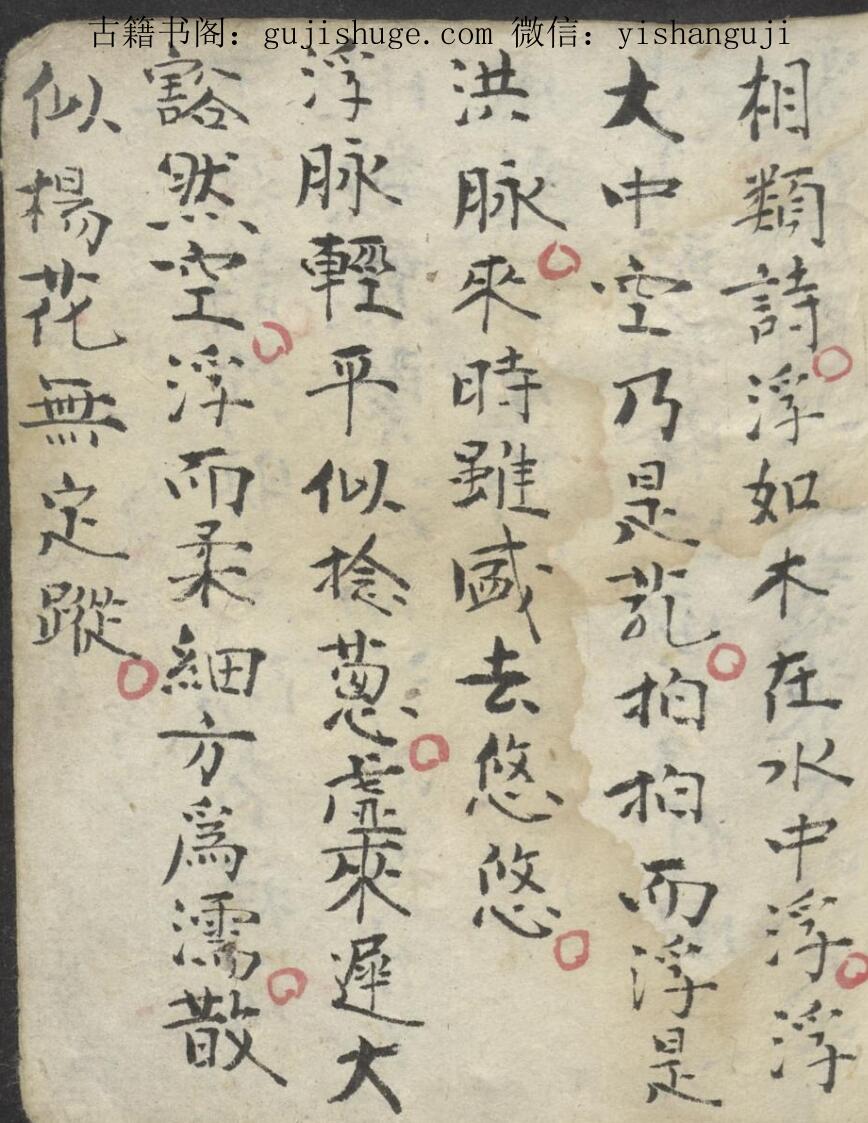 古籍书阁：gujishuge.com 微信：yishanguji
相類詩。浮如木在水中浮。浮
大中空乃是芤。拍拍而浮是
洪脉。來時雖盛去悠悠。
浮脉輕平似捻葱。虛來遲大
豁然空。浮而柔細方爲濡。散
似楊花無定蹤。